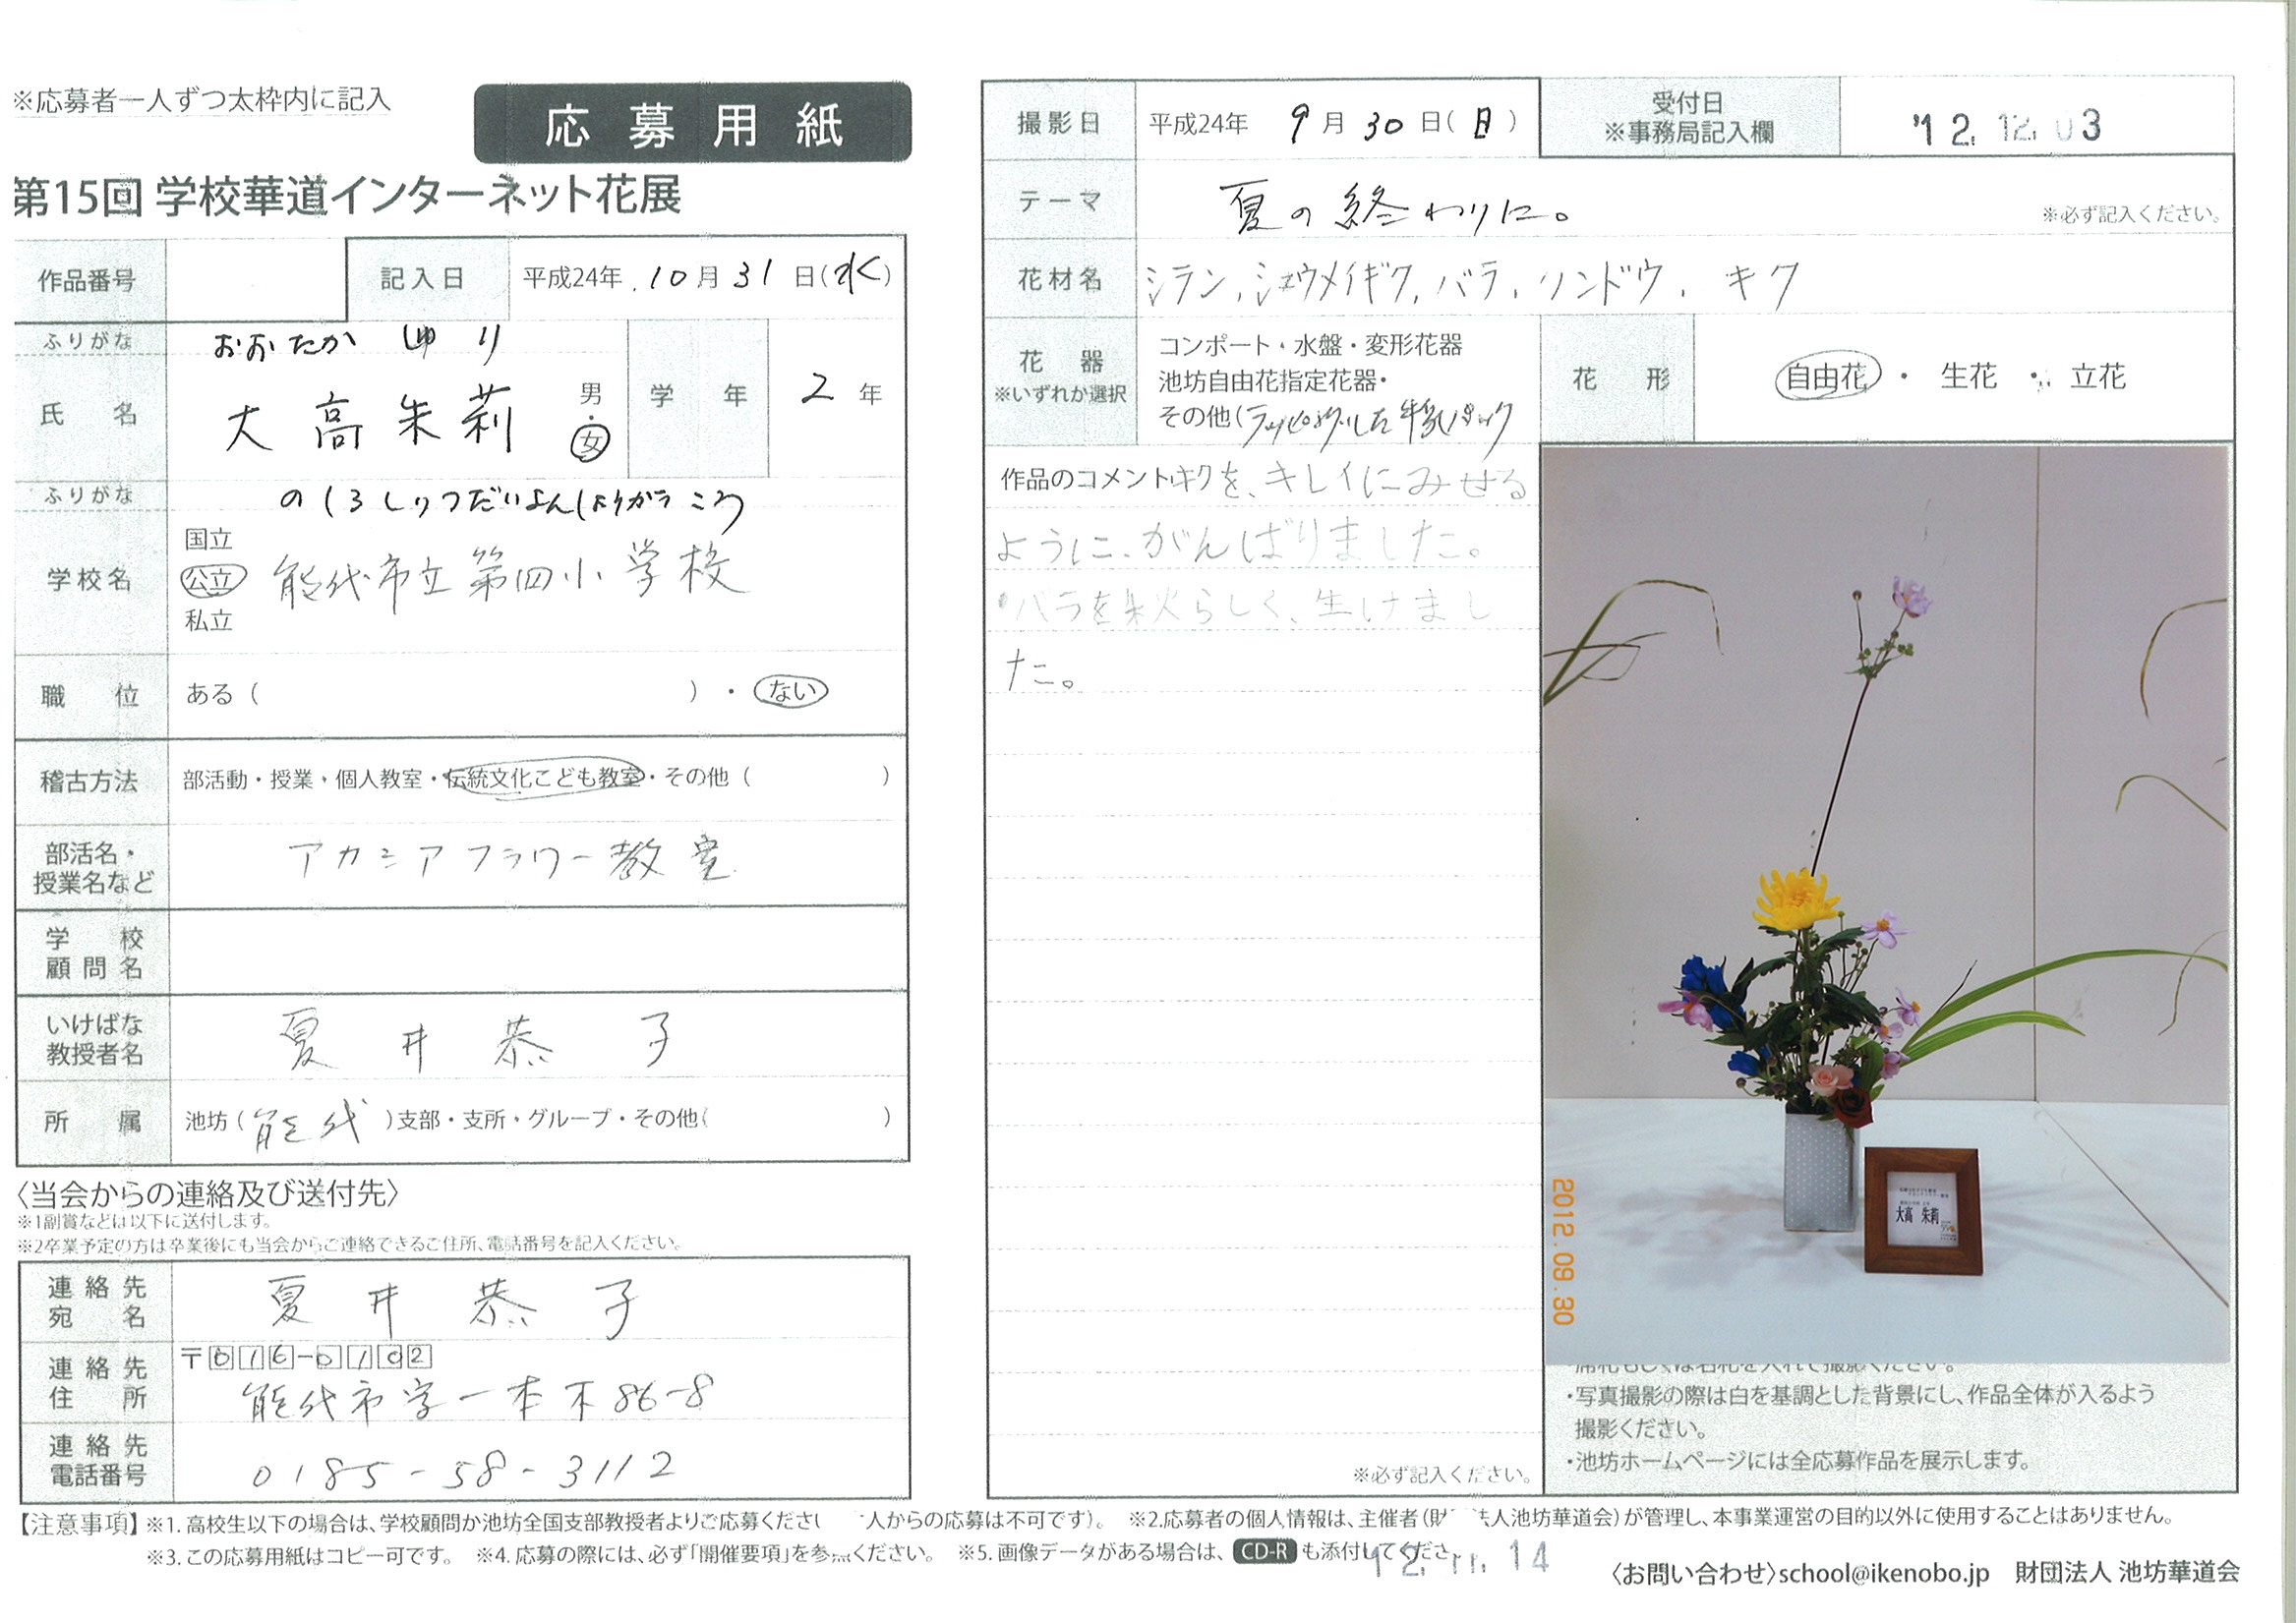 ※応募者一人ずつ太枠内に記入
応募用紙
第15回 学校華道インターネット花展
作品番号
記入日 平成24年 10月 31日(水)
ふりがな おおたか しゅり
氏名 大高朱莉 男・女
学年 2年
ふりがな のしろしりつだいよんしょうがっこう
学校名 国立 公立 私立 能代市立第四小学校
職位 ある( )・ない
稽古方法 部活動・授業・個人教室・伝統文化こども教室・その他( )
部活名・授業名など アカシアフラワー教室
学校顧問名
いけばな教授者名 夏井恭子
所属 池坊(能代)支部・支所・グループ・その他( )
〈当会からの連絡及び送付先〉
※1副賞などは以下に送付します。
※2卒業予定の方は卒業後にも当会からご連絡できるご住所、電話番号を記入ください。
連絡先宛名 夏井恭子
連絡先住所 〒016-0102
能代市字一本木86-8
連絡先電話番号 0185-58-3112
撮影日 平成24年 9月 30日(日)
受付日 ※事務局記入欄 '12.12.03
テーマ 夏の終わりに。 ※必ず記入ください。
花材名 シラン,シュウメイギク,バラ,リンドウ,キク
花器 ※いずれか選択
コンポート・水盤・変形花器
池坊自由花指定花器・
その他(ラッピングした牛乳パック
花形 自由花・生花・立花
作品のコメント キクを、キレイにみせる
ように、がんばりました。
・バラを秋らしく、生けまし
た。
※必ず記入ください。
大高 朱莉
2012.09.30
席札もしくは名札を入れて撮影ください。
・写真撮影の際は白を基調とした背景にし、作品全体が入るよう
撮影ください。
・池坊ホームページには全応募作品を展示します。
【注意事項】※1. 高校生以下の場合は、学校顧問か池坊全国支部教授者よりご応募くださ 人からの応募は不可です)。 ※2.応募者の個人情報は、主催者(財 法人池坊華道会)が管理し、本事業運営の目的以外に使用することはありません。
※3. この応募用紙はコピー可です。 ※4. 応募の際には、必ず「開催要項」を参 ください。 ※5. 画像データがある場合は、CD-Rも添付してくださ
12.11.14
〈お問い合わせ〉school@ikenobo.jp 財団法人 池坊華道会